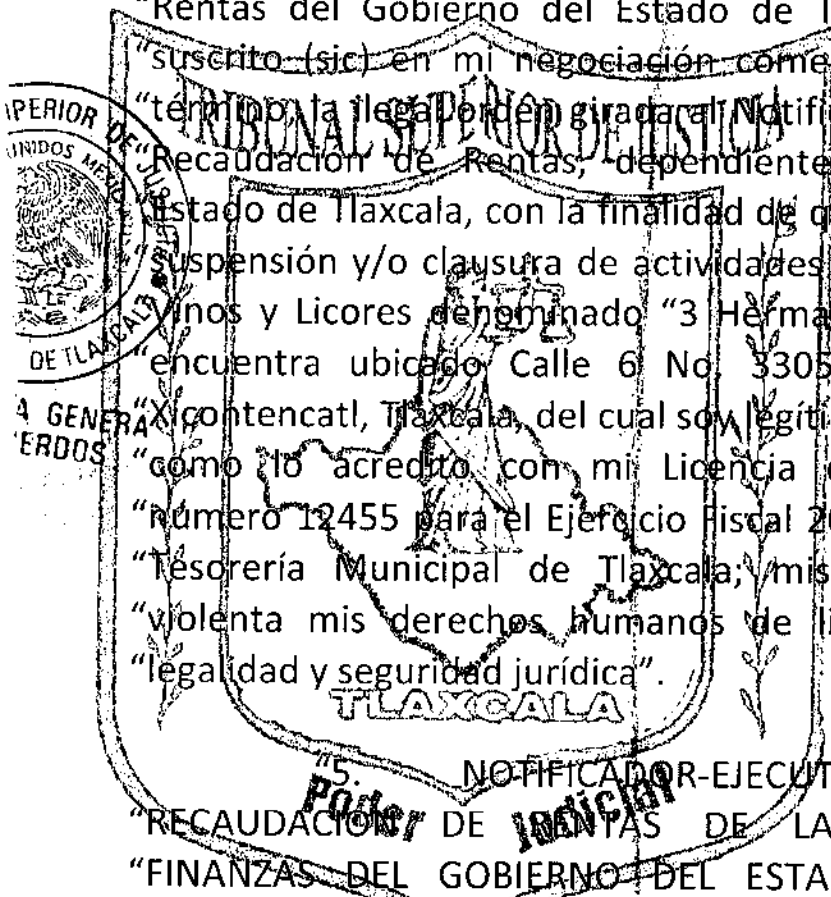 "Rentas del Gobierno del Estado de
"suscrito (sic) en mi negociación come
"término, la ilegal orden girada al Notifi
"Recaudación de Rentas, dependiente
"Estado de Tlaxcala, con la finalidad de q
"suspensión y/o clausura de actividades
"Vinos y Licores denominado "3 Herma
"encuentra ubicado Calle 6 No. 3305
"Xicohtencatl, Tlaxcala, del cual soy legíti
"como lo acredito con mi Licencia
"número 12455 para el Ejercicio Fiscal 2
"Tesorería Municipal de Tlaxcala; mis
"violenta mis derechos humanos de li
"legalidad y seguridad jurídica".
"5. NOTIFICADOR-EJECUT
"RECAUDACIÓN DE RENTAS DE LA
"FINANZAS DEL GOBIERNO DEL ESTA
TRIBUNAL SUPERIOR DE JUSTICIA
TLAXCALA
Poder Judicial
PERIOR DE JUSTICIA
UNIDOS MEX
DE TLAXCALA
A GENERA
ERDOS